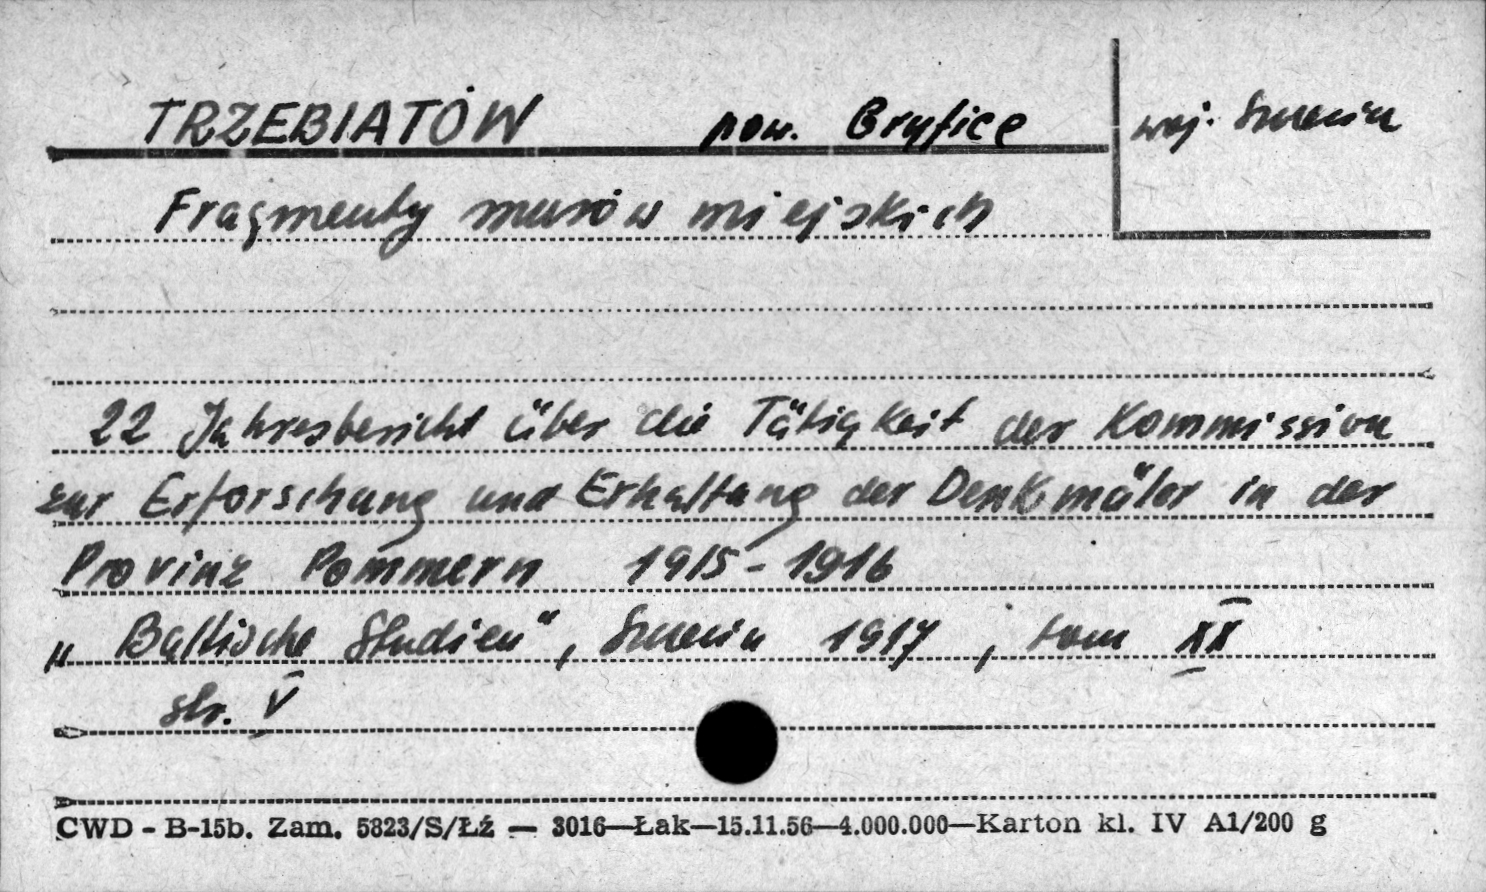 TRZEBIATÓW pow. Gryfice woj. Szczecin
Fragmenty murów miejskich
22 Jahresbericht über die Tätigkeit der Kommission
zur Erforschung und Erhaltung der Denkmäler in der
Provinz Pommern 1915-1916
„Baltische Studien", Szczecin 1917, tom XX
str. V
CWD - B-15b. Zam. 5823/S/Łź — 3016—Łak—15.11.56—4.000.000—Karton kl. IV A1/200 g